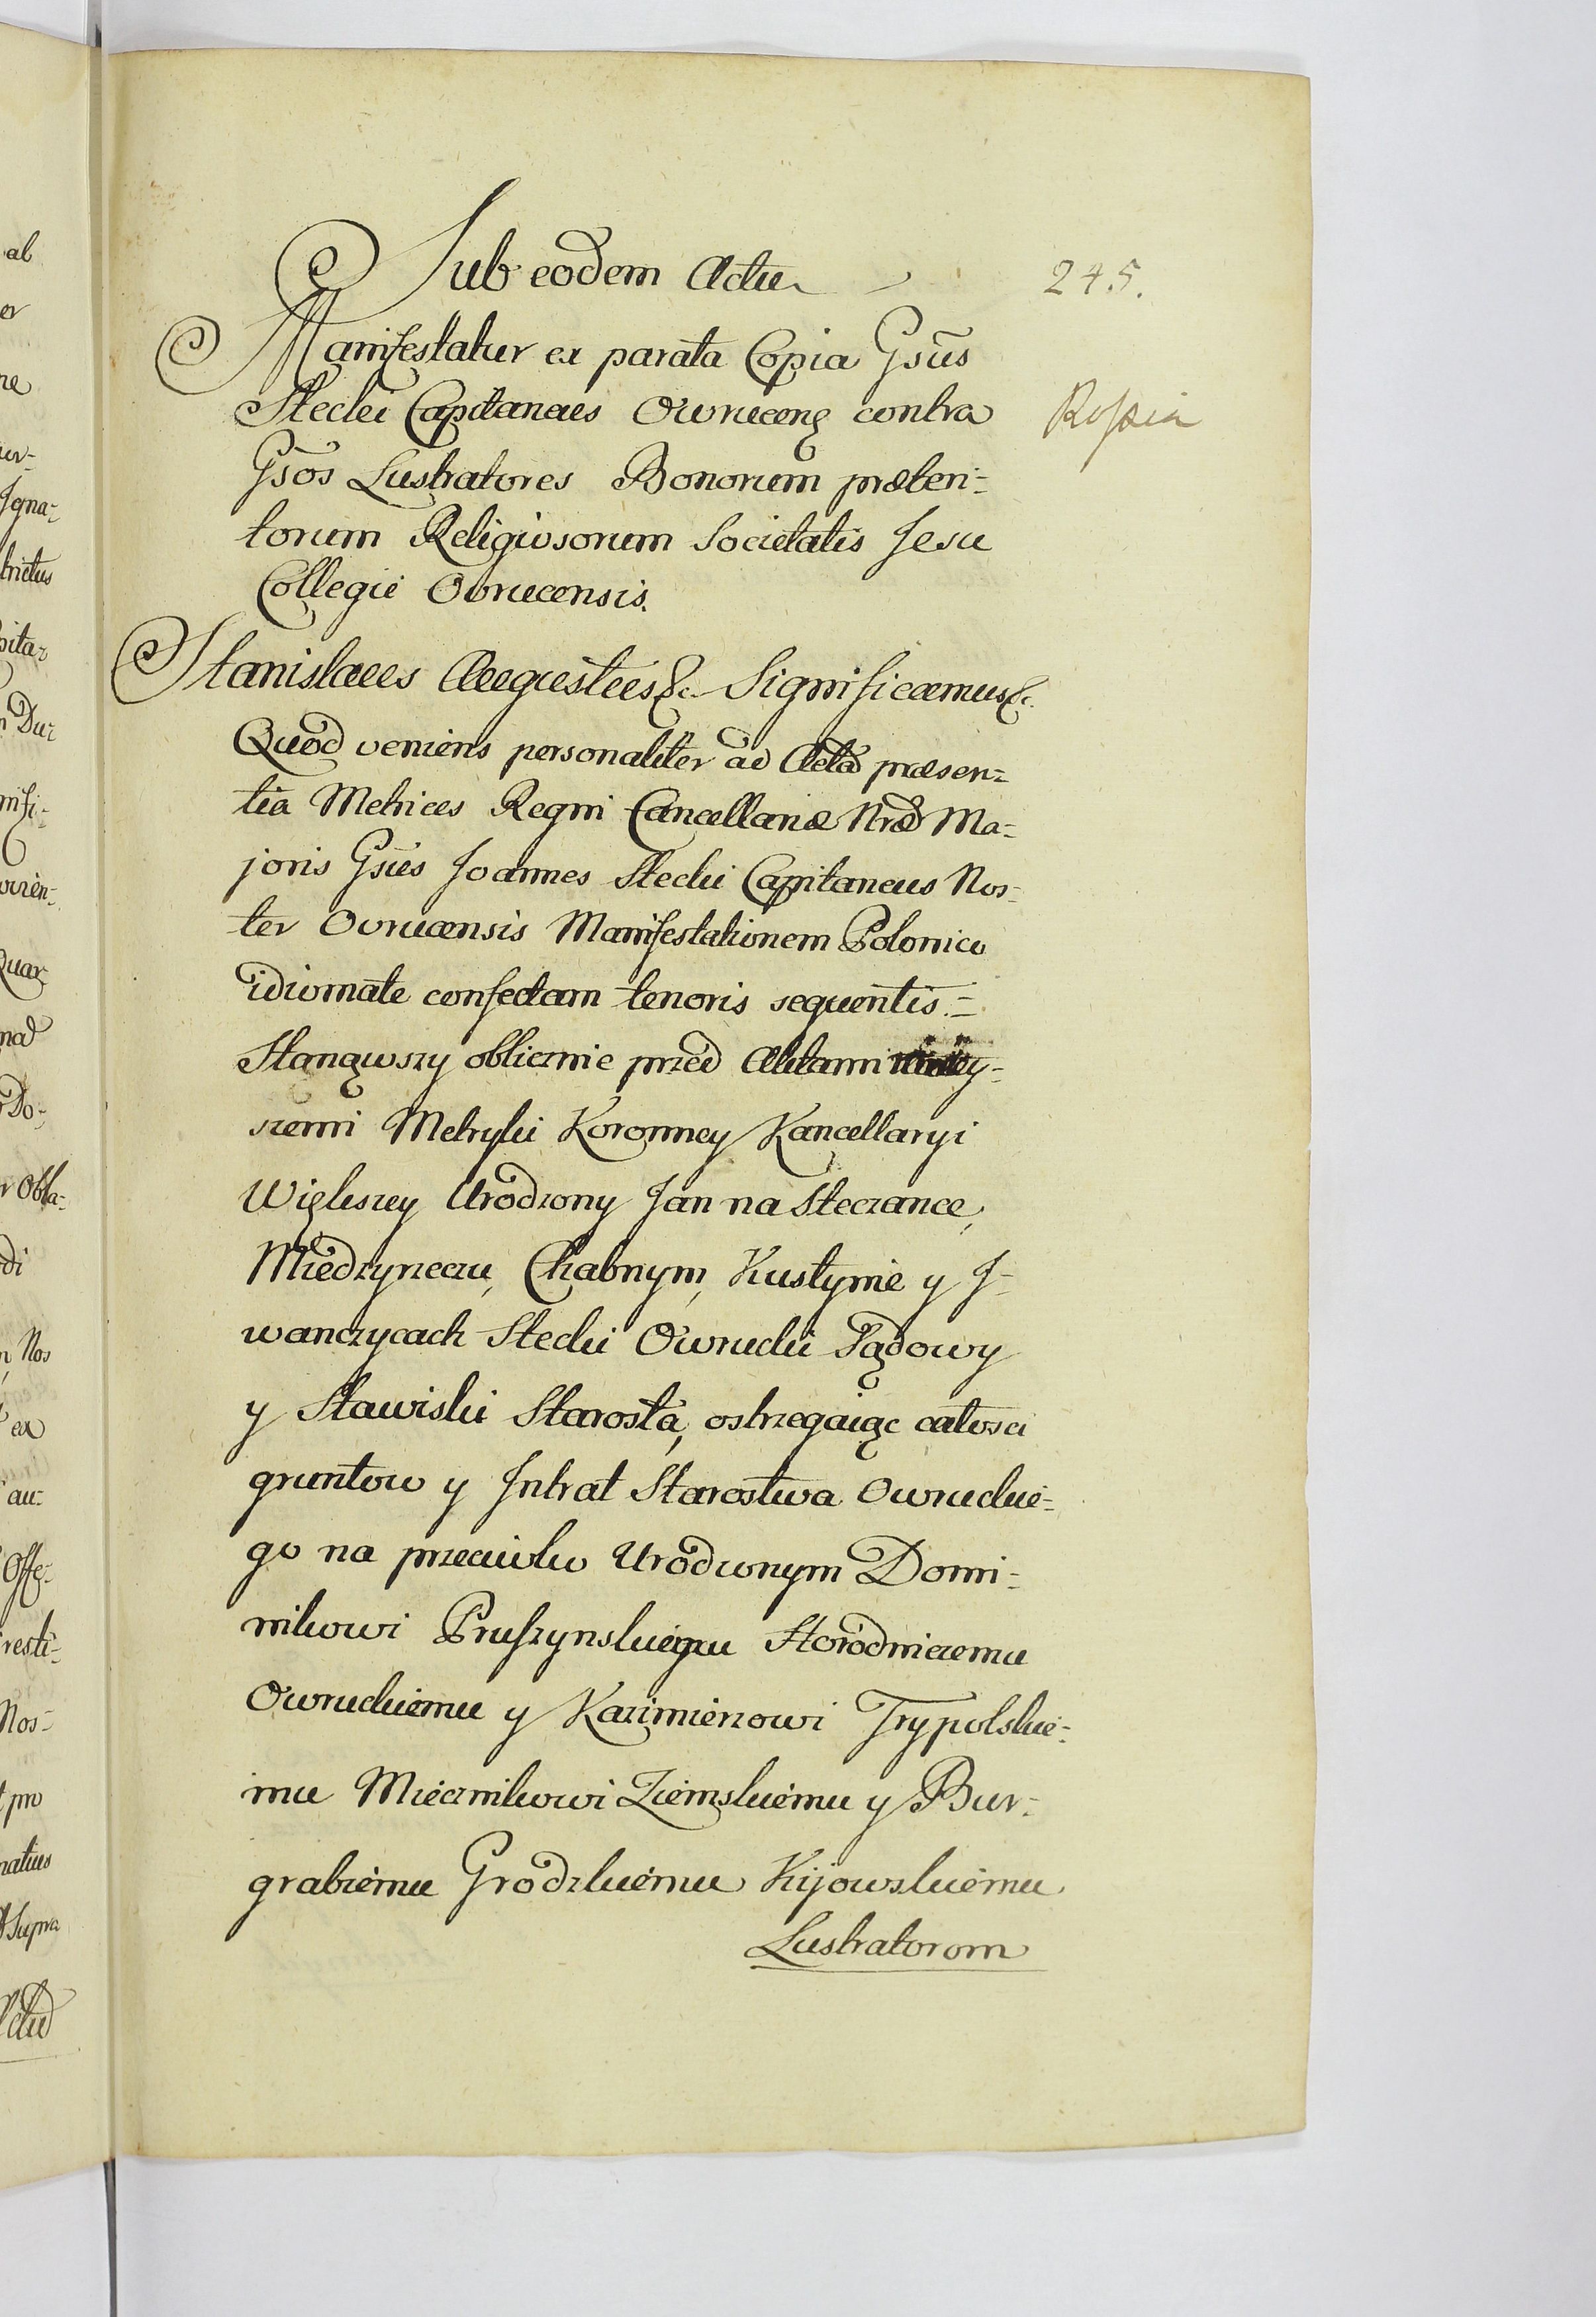 Sub eodem Actu
245.
Manifestatur ex parata Copia Gsūs
Stecki Capitaneus Owrucen̄ contra
Rossia
Gsōs Lustratores Bonorum præten=
torum Religiosorum Societatis Jesu
Collegii Ovrucensis.
Stanislaus Augustus &c. Significamus &c.
Quod veniens personaliter ad Acta præsen=
tia Metrices Regni Cancellariæ Nræ Ma=
joris Gsūs Joannes Stecki Capitaneus Nos=
ter Ovrucensis Manifestationem Polonico
idiomate confectam tenoris sequentis.=
Stanąwszy oblicznie przed Aktami niniey=
szemi Metryki Koronney Kancellaryi
Większey Urodzony Jan na Steczance,
Miedzyrzeczu, Chabnym, Kustynie y J=
wanczycach Stecki Owrucki Sądowy
y Stawiski Starosta, ostrzegaiąc całosci
gruntow y Intrat Starostwa Owruckie=
go na przeciwko Urodzonym Domi=
nikowi Pruszynskiemu Horodniczemu
Owruckiemu y Kazimierzowi Trypolskie=
mu Miecznikowi Ziemskiemu y Bur=
grabiemu Grodzkiemu Kijowskiemu
Lustratorom